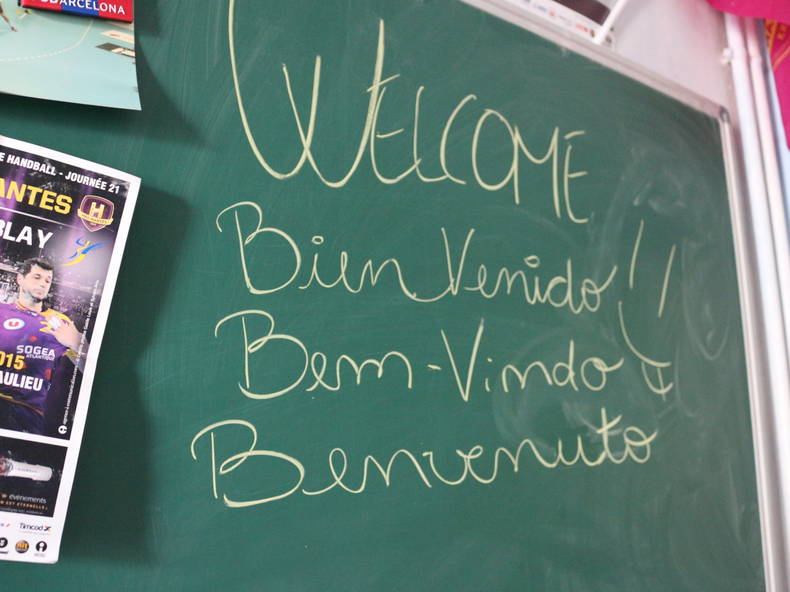 BARCELONA
E HANDBALL - JOURNÉE 21
ANTES
BLAY
SOGEA
ATLANTIQUE
015
AULIEU
événements
Timcod
WELCOME
BienVenido !!
Bem-Vindo
Benvenuto